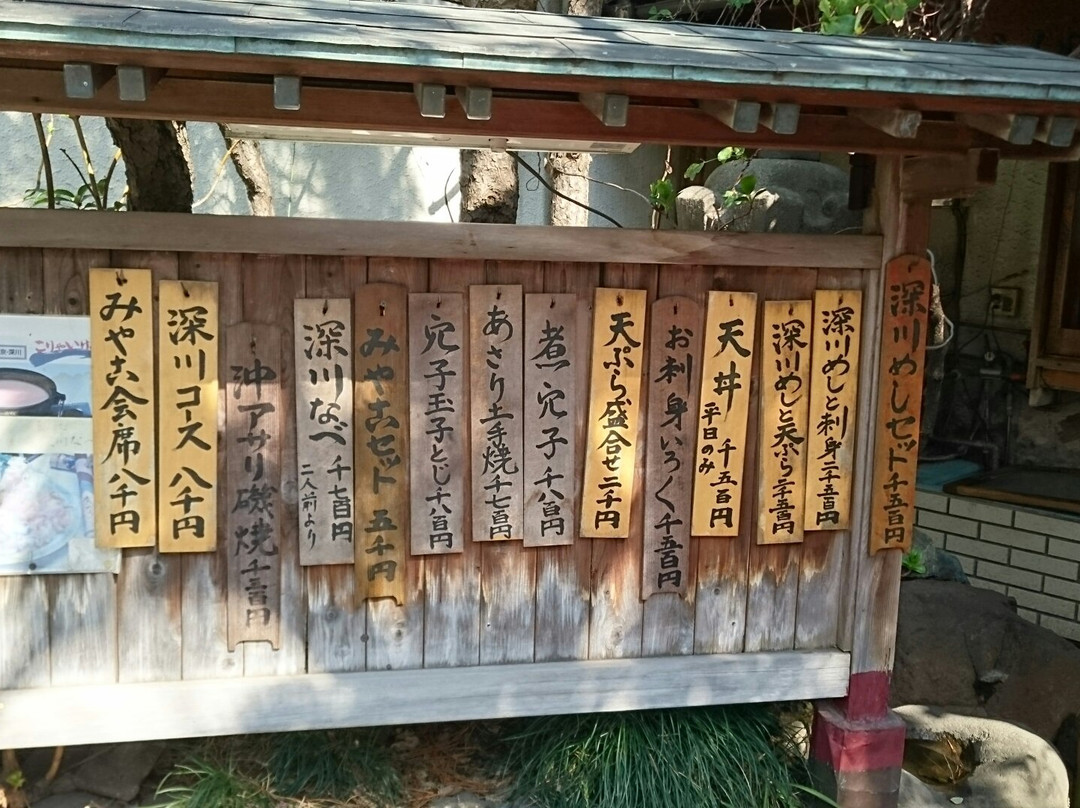 深川めしセット 千五百円
深川めしと刺身 二千五百円
深川めしと天ぷら 二千五百円
天丼 平日のみ 千五百円
お刺身いろく 千五百円
天ぷら盛合せ 二千円
煮穴子 千八百円
あさり土手焼 千七百円
穴子玉子とじ 千六百円
みやこセット 五千円
深川なべ 千七百円
二人前より
沖アサリ磯焼
深川コース 八千円
みやこ会席 八千円